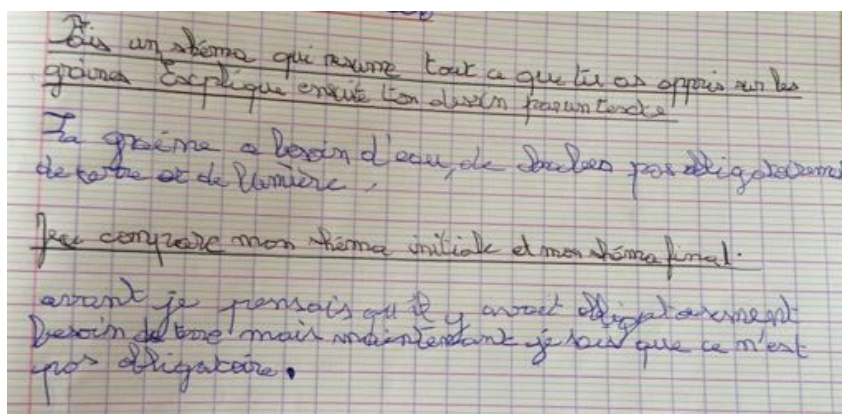 Fais un shéma qui résume tout ce que tu as appris sur les
graines Explique ensuite ton dessin par un texte
La graine a besoin d'eau, de chaleur pas obligatoirement
de terre et de lumière.
Je compare mon shéma initiale et mon shéma final.
avant je pensais qu'il y avait obligatoirement
besoin de terre mais maintenant je sais que ce n'est
pas obligatoire.